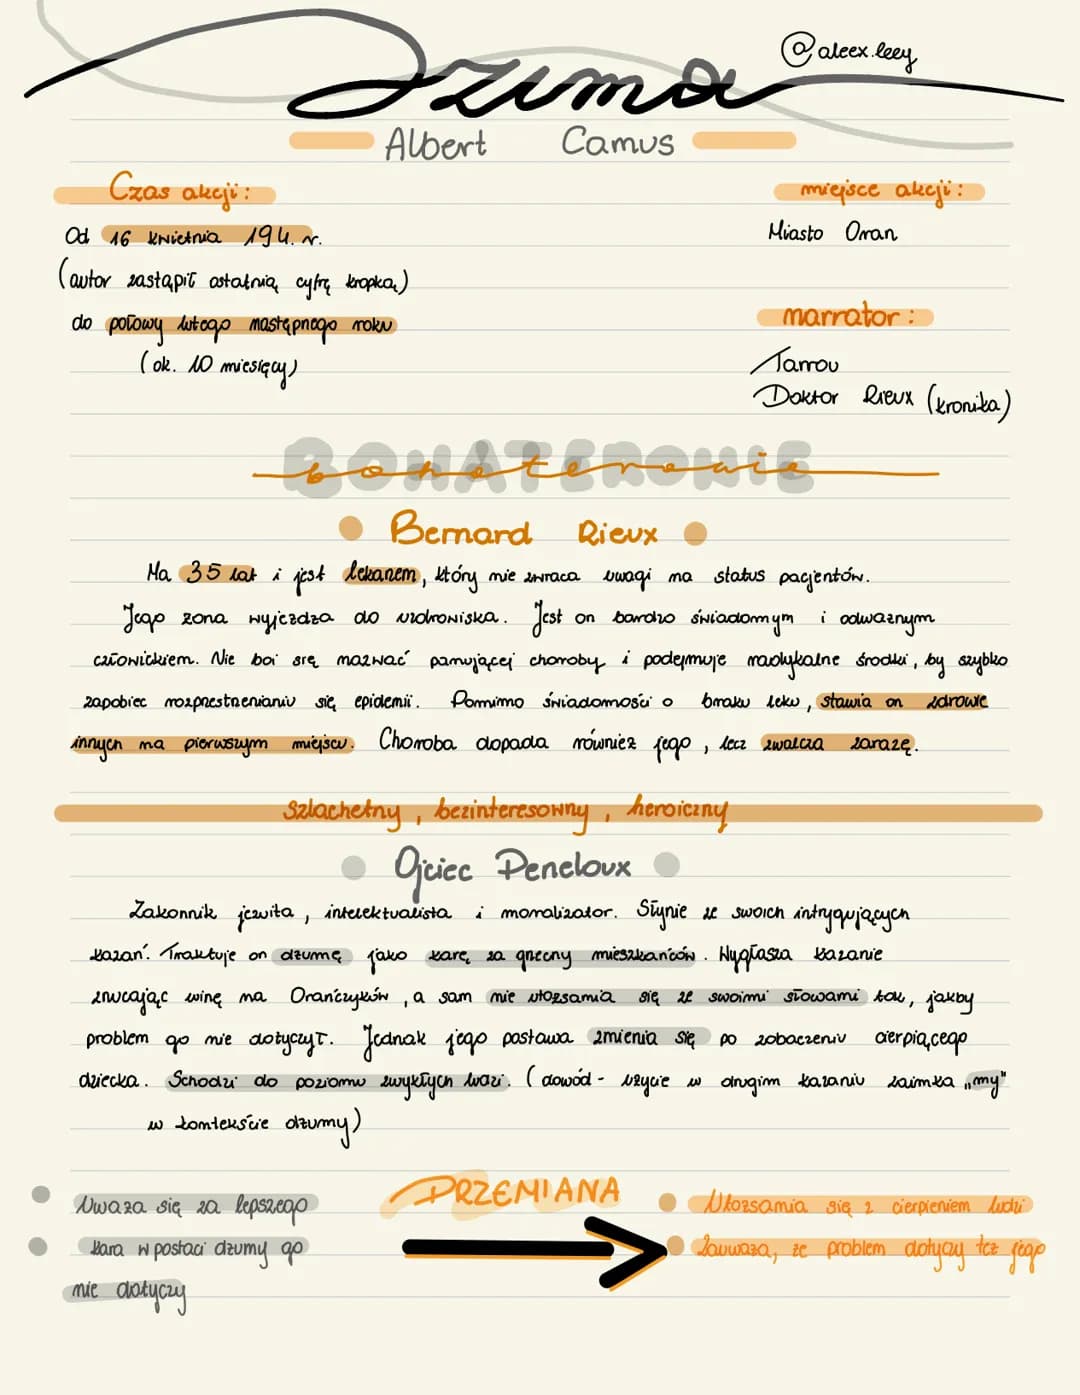 @aleex.leey
Dżuma
Albert Camus
Czas akcji:
Od 16 kwietnia 194. r.
(autor zastąpił ostatnią cyfrę kropką)
do połowy lutego następnego roku
(ok. 10 miesięcy)
miejsce akcji:
Miasto Oran
narrator:
Tarrou
Doktor Rieux (kronika)
BOHATEROWIE
bohaterowie
Bernard Rieux
Ma 35 lat i jest lekarzem, który nie zwraca uwagi na status pacjentów.
Jego żona wyjeżdża do uzdrowiska. Jest on bardzo świadomym i odważnym
człowiekiem. Nie boi się nazwać panującej choroby i podejmuje radykalne środki, by szybko
zapobiec rozprzestrzenianiu się epidemii. Pomimo świadomości o braku leku, stawia on zdrowie
innych na pierwszym miejscu. Choroba dopada również jego, lecz zwalcza zarazę.
szlachetny, bezinteresowny, heroiczny
Ojciec Peneloux
Zakonnik jezuita, intelektualista i moralizator. Słynie ze swoich intrygujących
kazań. Traktuje on dżumę jako karę za grzechy mieszkańców. Wygłasza kazanie
zrzucając winę na Orańczyków, a sam nie utożsamia się ze swoimi słowami tak, jakby
problem go nie dotyczył. Jednak jego postawa zmienia się po zobaczeniu cierpiącego
dziecka. Schodzi do poziomu zwykłych ludzi. (dowód - użycie w drugim kazaniu zaimka „my"
w kontekście dżumy)
PRZEMIANA
Uważa się za lepszego
kara w postaci dżumy go
nie dotyczy
Utożsamia się z cierpieniem ludzi
Zauważa, że problem dotyczy też jego